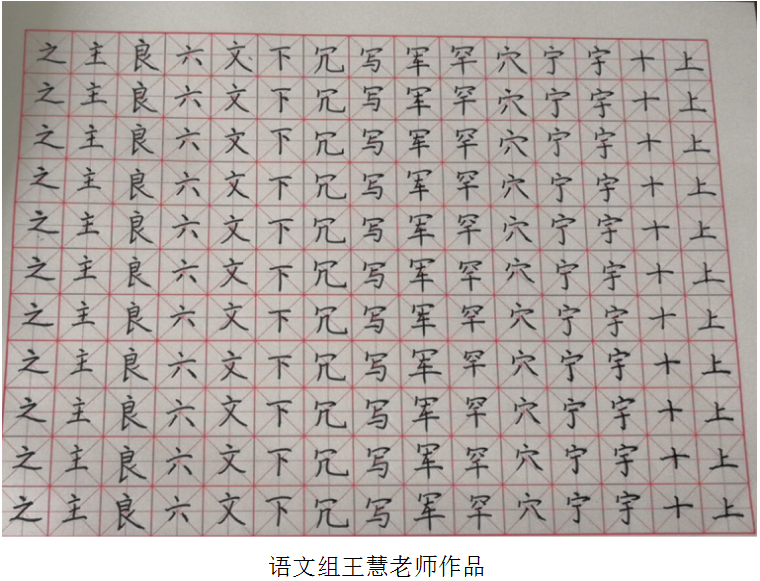 之主良六文下冗写军罕穴宁宇十上
之主良六文下冗写军罕穴宁宇十上
之主良六文下冗写军罕穴宁宇十上
之主良六文下冗写军罕穴宁宇十上
之主良六文下冗写军罕穴宁宇十上
之主良六文下冗写军罕穴宁宇十上
之主良六文下冗写军罕穴宁宇十上
之主良六文下冗写军罕穴宁宇十上
之主良六文下冗写军罕穴宁宇十上
之主良六文下冗写军罕穴宁宇十上
之主良六文下冗写军罕穴宁宇十上
语文组王慧老师作品